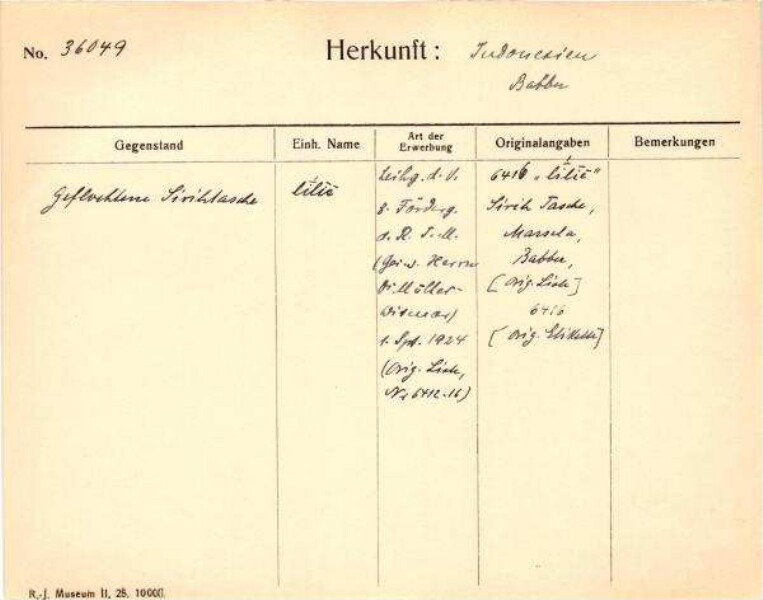 No. 36049
Herkunft: Indonesien
Babber
Gegenstand
Einh. Name
Art der Erwerbung
Originalangaben
Bemerkungen
Geflochtene Sirihtasche
lilíë
Leihg. d. V.
z. Förderg.
d. R. J. M.
(Ges. v. Herrn
Dr. Müller-
Wismar)
1. Spt. 1924
(Orig. Liste,
Nr 6412-16)
6416 „lilíë"
Sirih Tasche,
Marsela,
Babber,
[Orig. Liste]
6416
[Orig. Etikette]
R.-J. Museum II, 25, 10000.